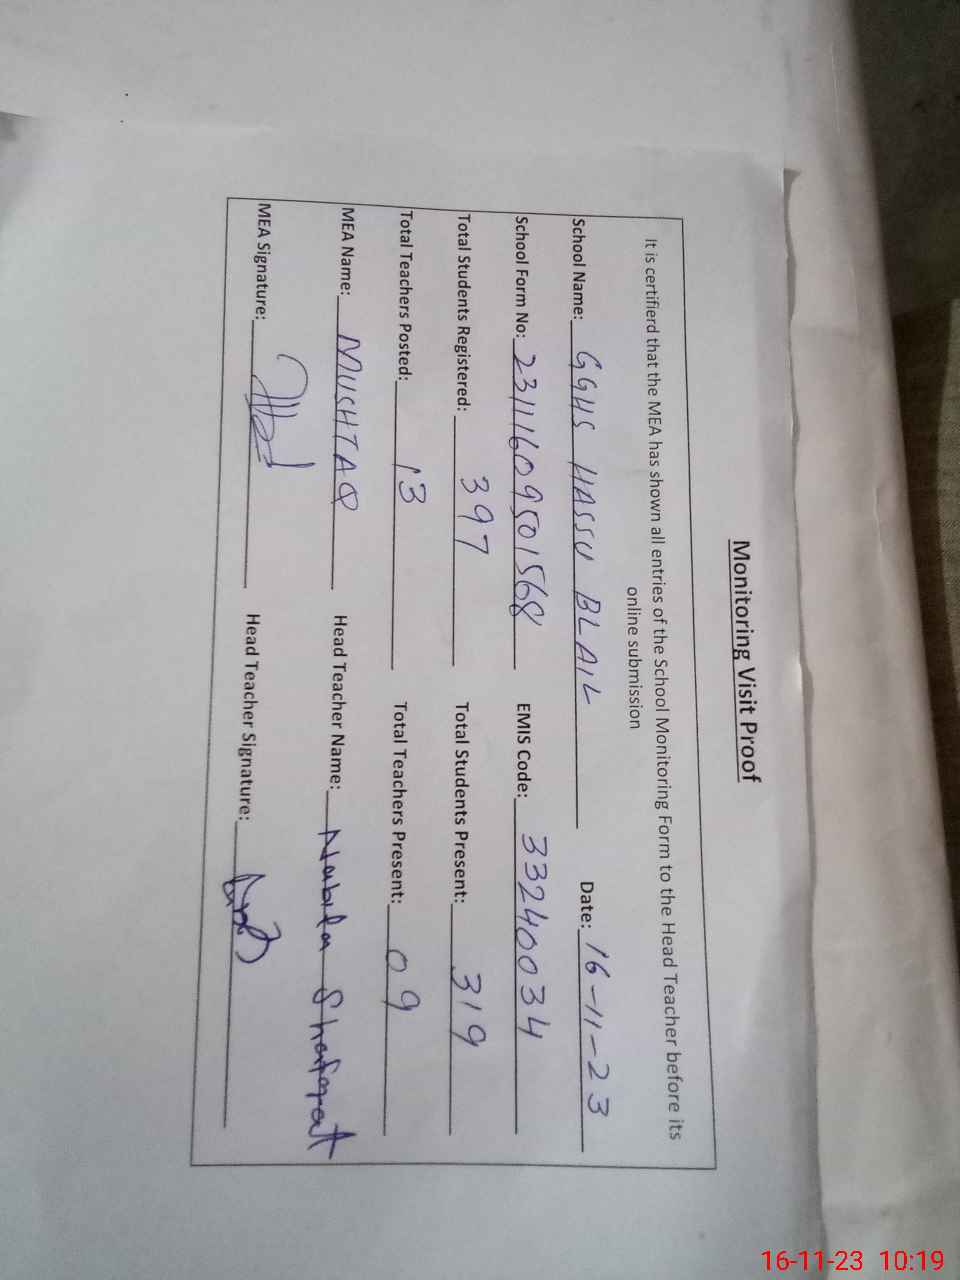 Monitoring Visit Proof
It is certifierd that the MEA has shown all entries of the School Monitoring Form to the Head Teacher before its
online submission
School Name: GGHS HASSU BLAIL Date: 16-11-23
School Form No: 23111609501568 EMIS Code: 33240034
Total Students Registered: 397 Total Students Present: 319
Total Teachers Posted: 13 Total Teachers Present: 09
MEA Name: MUSHTAQ Head Teacher Name: Nabila Shafqat
MEA Signature: Head Teacher Signature:
16-11-23 10:19